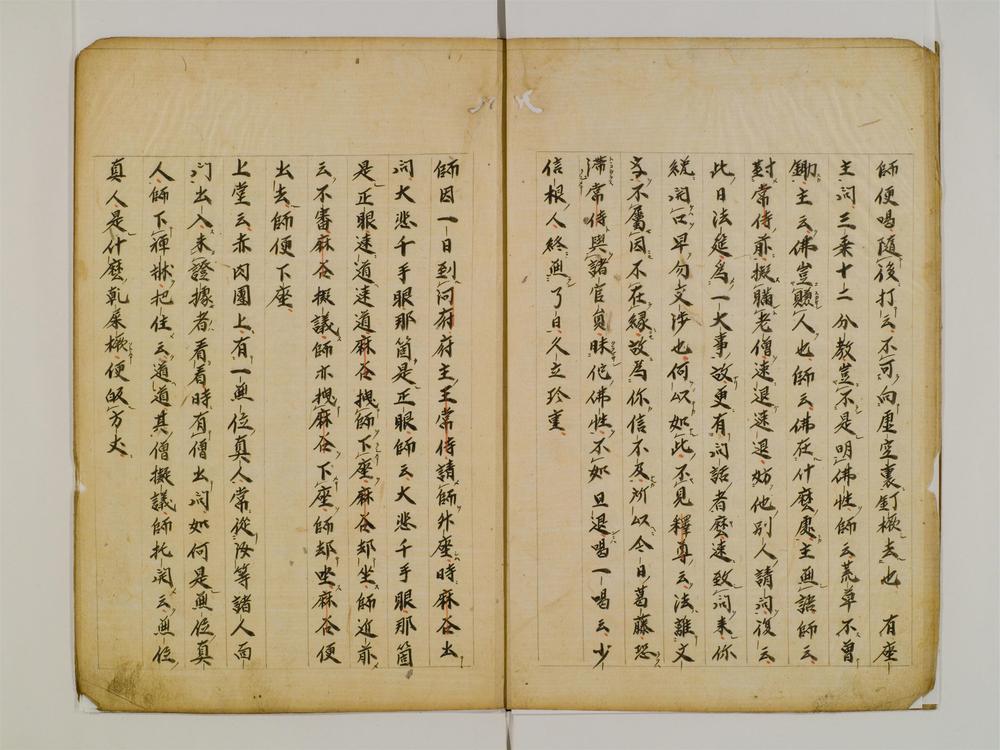 師便喝随後打云不可向虚空裏釘橛去也　有座
主問三乗十二分教豈不是明佛性師云荒草不曽
鋤主云佛豈賺人也師云佛在什麽處主無語師云
對常侍前擬瞞老僧速退速退妨他別人請問復云
此日法筵為一大事故更有問話者麽速致問来你
纔開口早勿交渉也何以如此不見釋尊云法離文
字不屬因不在縁故為你信不及所以今日葛藤恐
滯常侍與諸官員昧佗佛性不如且退喝一喝云少
信根人終無了日久立珍重
師因一日到河府府主王常侍請師升座時麻谷出
問大悲千手眼那箇是正眼師云大悲千手眼那箇
是正眼速道速道麻谷拽師下座麻谷却坐師近前
云不審麻谷擬議師亦拽麻谷下座師却坐麻谷便
出去師便下座
上堂云赤肉團上有一無位真人常從汝等諸人面
門出入未證據者看看時有僧出問如何是無位真
人師下禅牀把住云道道其僧擬議師托開云無位
真人是什麽乾屎橛便皈方丈